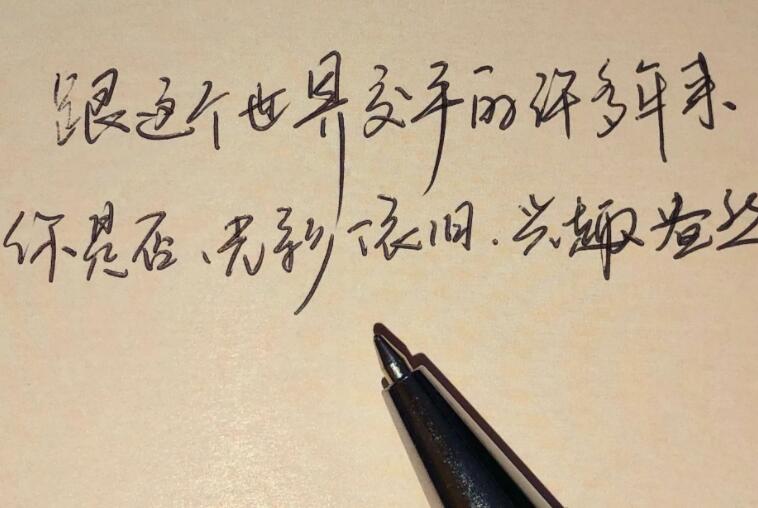 跟这个世界交手的许多年来、
你是否、光彩依旧、兴趣盎然